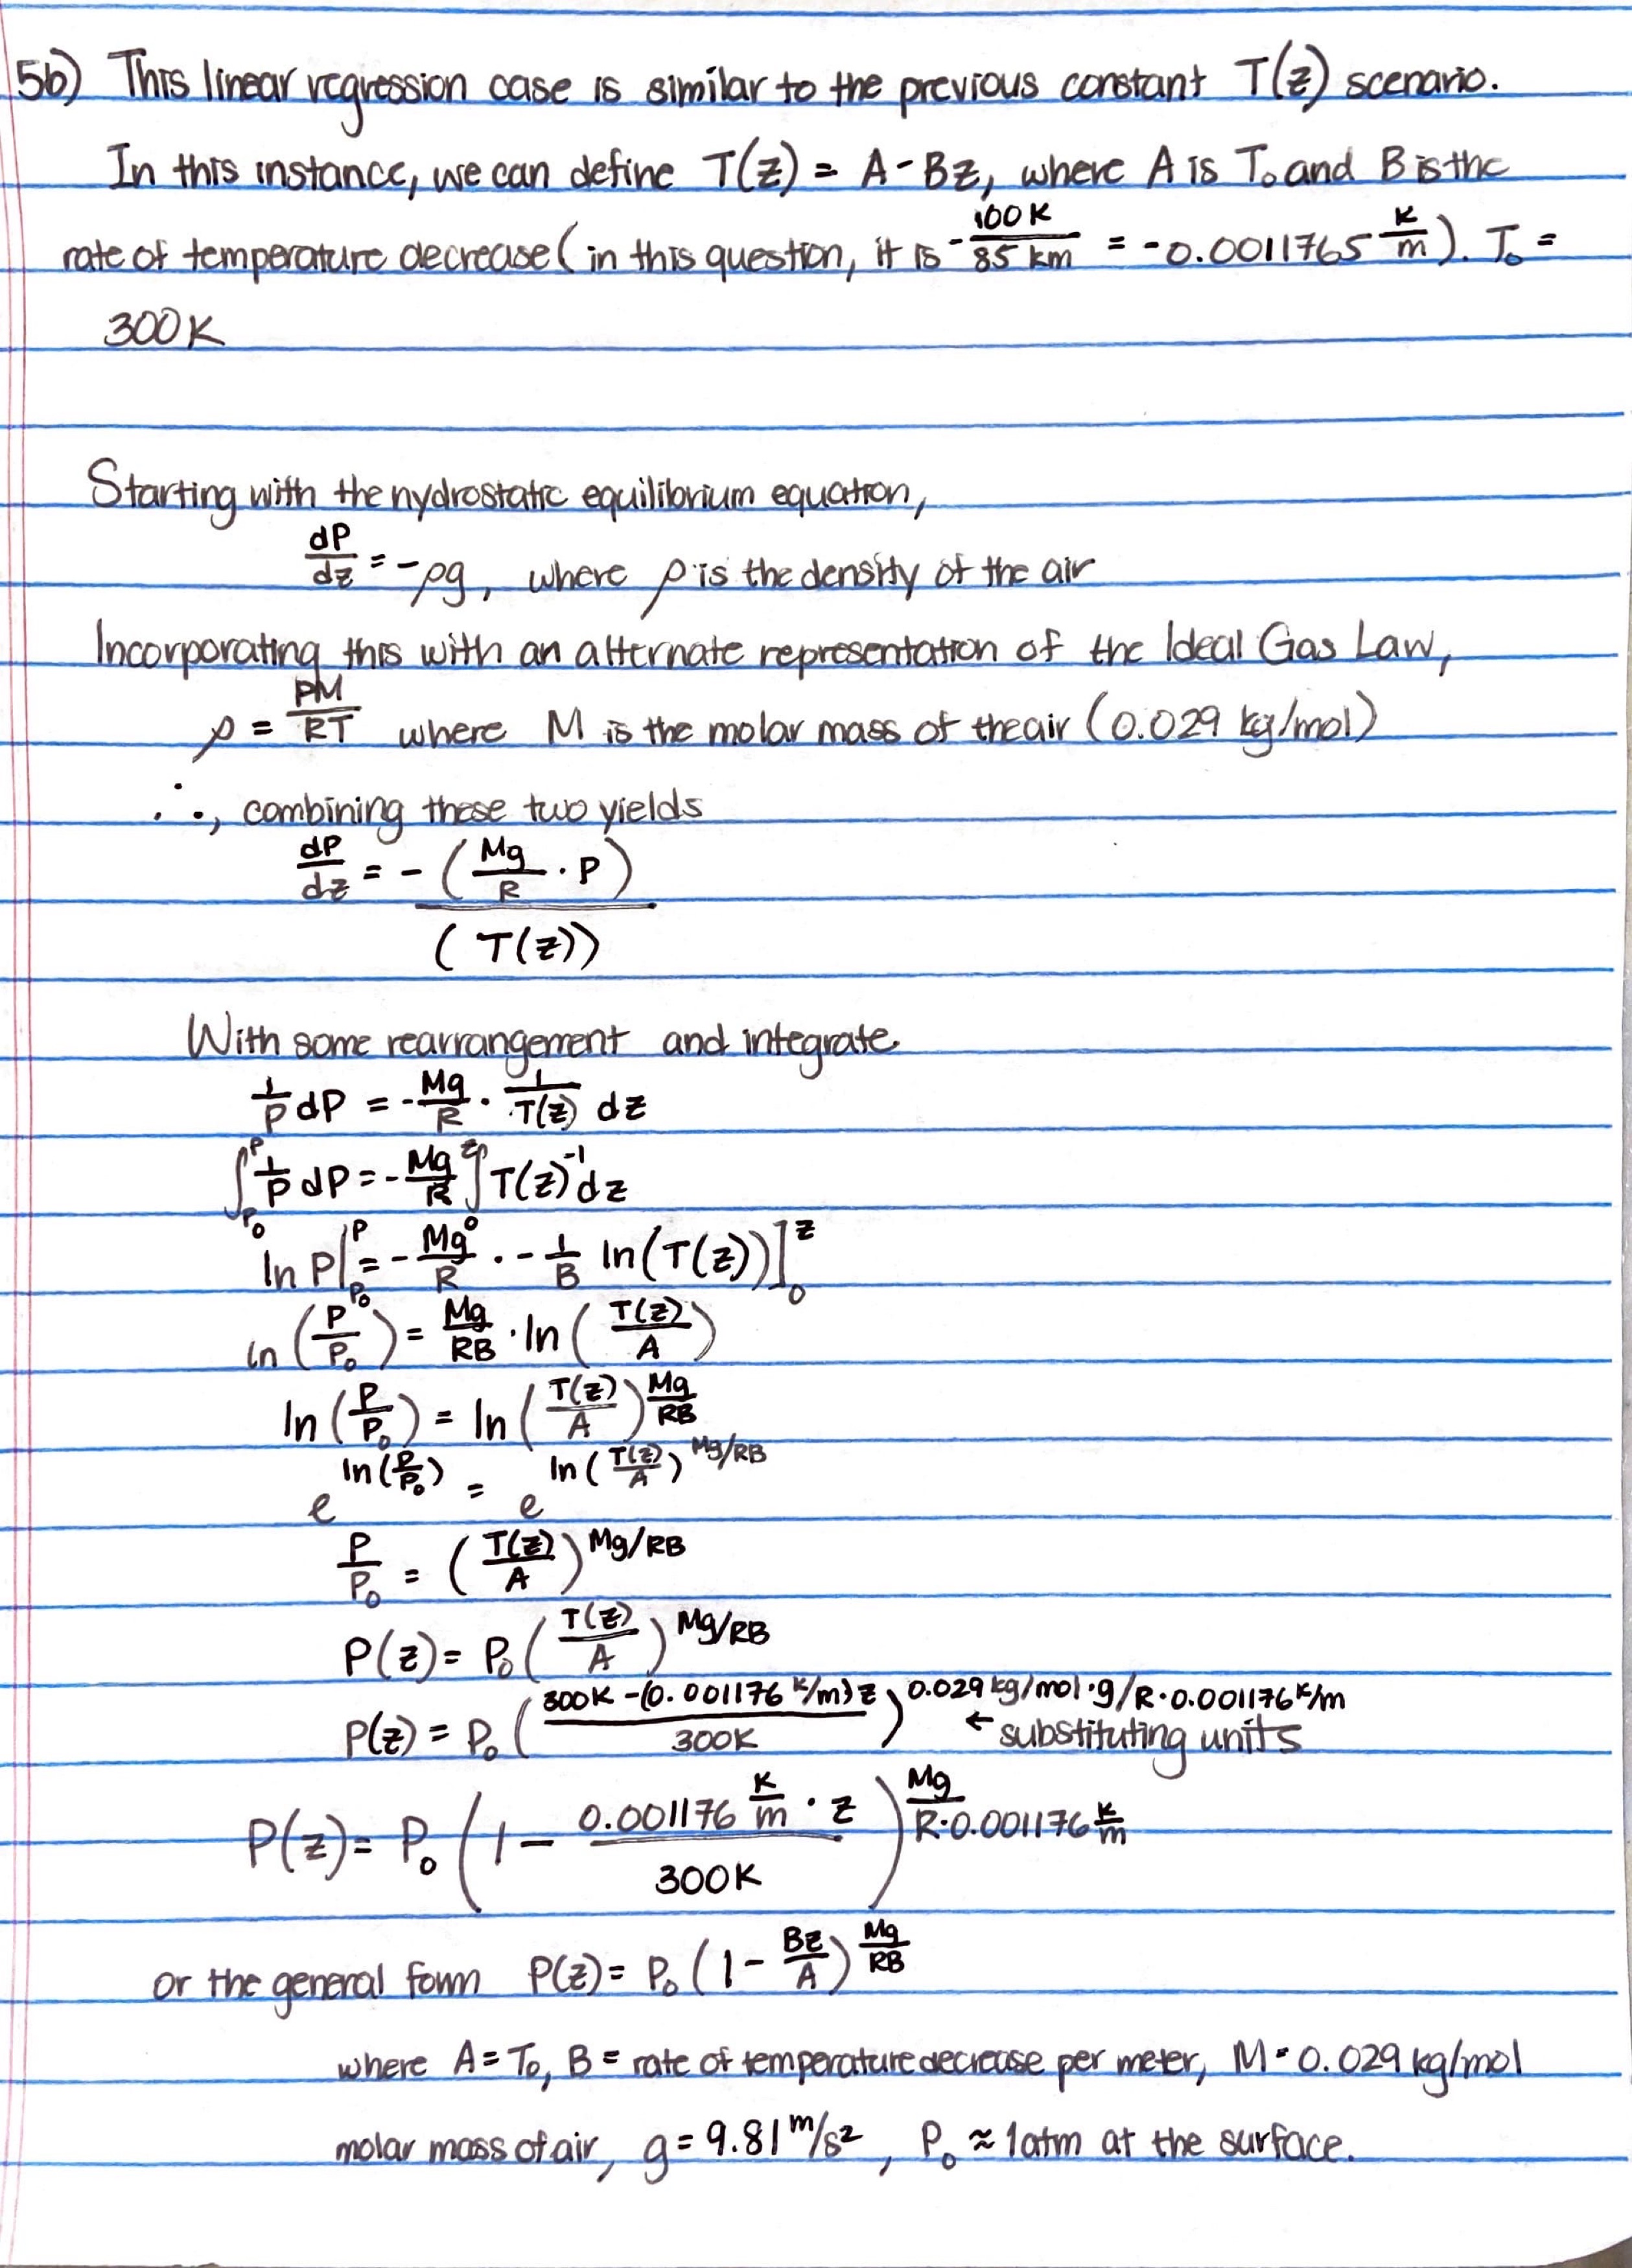 5b) This linear regression case is similar to the previous constant T(z) scenario.
In this instance, we can define T(z) = A - Bz, where A is T₀ and B is the
rate of temperature decrease (in this question, it is -100K/85 km = -0.0011765 K/m). T₀ =
300K
Starting with the hydrostatic equilibrium equation,
dP/dz = -ρg, where ρ is the density of the air
Incorporating this with an alternate representation of the Ideal Gas Law,
ρ = PM/RT where M is the molar mass of the air (0.029 kg/mol)
∴, combining these two yields
dP/dz = - (Mg/R · P) / (T(z))
With some rearrangement and integrate
1/P dP = -Mg/R · 1/T(z) dz
∫_P₀^P 1/P dP = -Mg/R ∫_0^z T(z)⁻¹ dz
ln P|_P₀^P = -Mg/R · -1/B ln(T(z))]_0^z
ln(P/P₀) = Mg/RB · ln(T(z)/A)
ln(P/P₀) = ln(T(z)/A)^(Mg/RB)
e^(ln(P/P₀)) = e^(ln(T(z)/A)^(Mg/RB))
P/P₀ = (T(z)/A)^(Mg/RB)
P(z) = P₀(T(z)/A)^(Mg/RB)
P(z) = P₀((300K - (0.001176 K/m)z)/300K)^(0.029 kg/mol·g/R·0.001176 K/m)
← substituting units
P(z) = P₀(1 - (0.001176 K/m · z)/300K)^(Mg/(R·0.001176 K/m))
or the general form P(z) = P₀(1 - Bz/A)^(Mg/RB)
where A = T₀, B = rate of temperature decrease per meter, M = 0.029 kg/mol
molar mass of air, g = 9.81 m/s², P₀ ≈ 1atm at the surface.